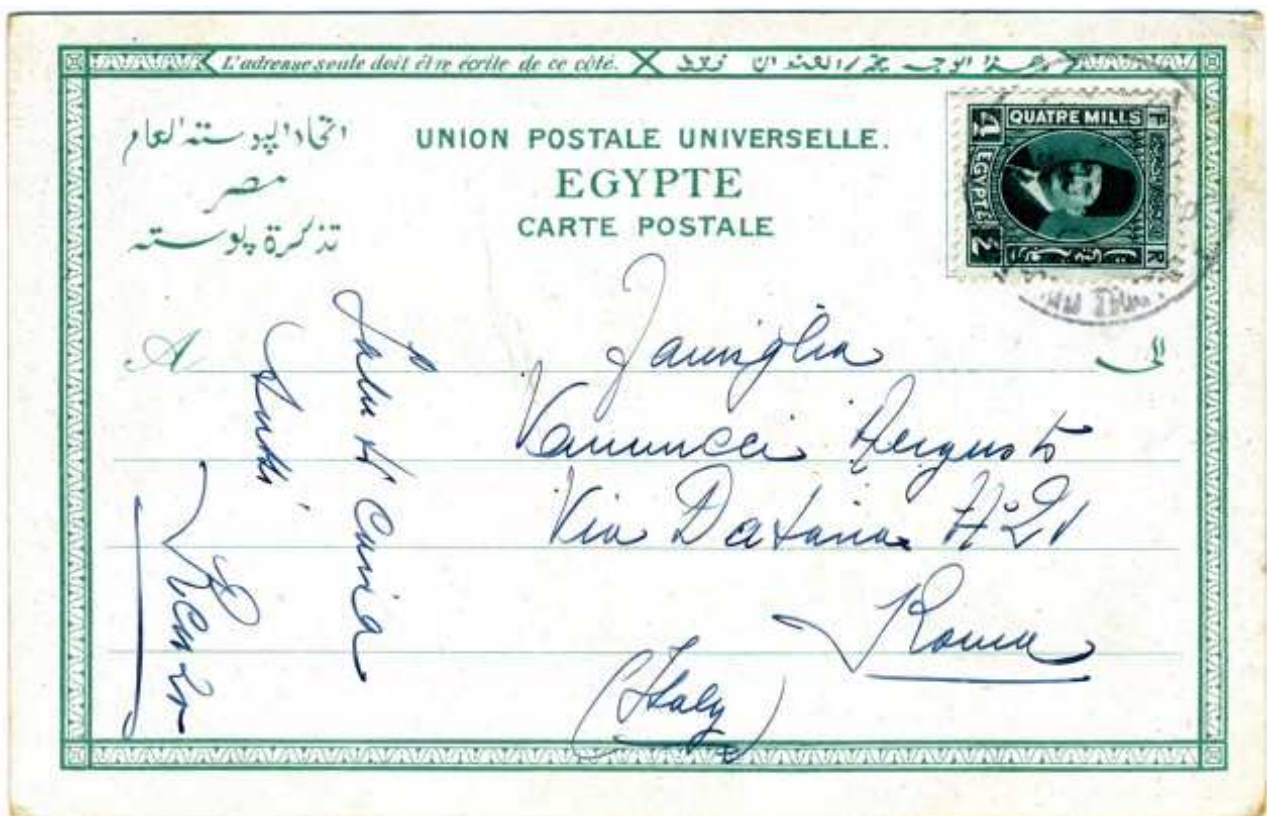 L'adresse seule doit être écrite de ce côté.
اتحاد البوسته العام
مصر
تذكرة بوسته
UNION POSTALE UNIVERSELLE.
EGYPTE
CARTE POSTALE
QUATRE MILLS
4
EGYPTE
F
R
A
Famiglia
Vannucci Augusto
Via Dataria N° 21
Roma
(Italy)
Renzo